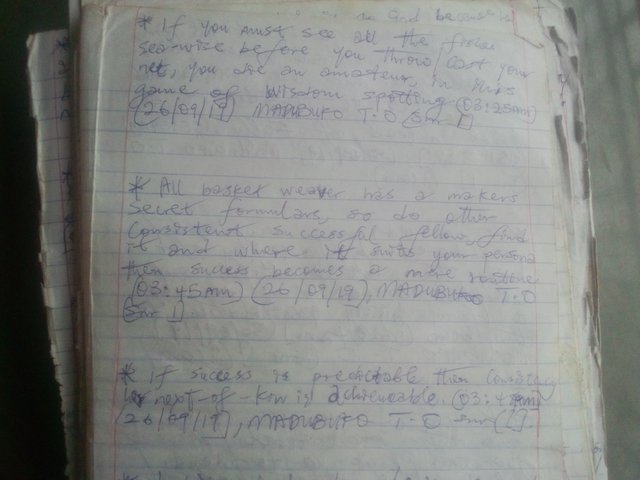 God because
* If you must see all the fishes
sea-wise before you throw/cast your
net, you are an amateur, in this
game of wisdom spotting (03:25am)
(26/09/19) MADUBUKO T.O (Snr 1)
* All basket weaver has a makers
secret formulars, so do other
consistent successful fellow, find
it and where it suits your persona
then success becomes a mere routine
(03:45am) (26/09/19), MADUBUKO T.O
(Snr 1
* If success is predictable then consistency
next-of-kin is achieveable.
26/09/19), MADUBUKO T-O snr